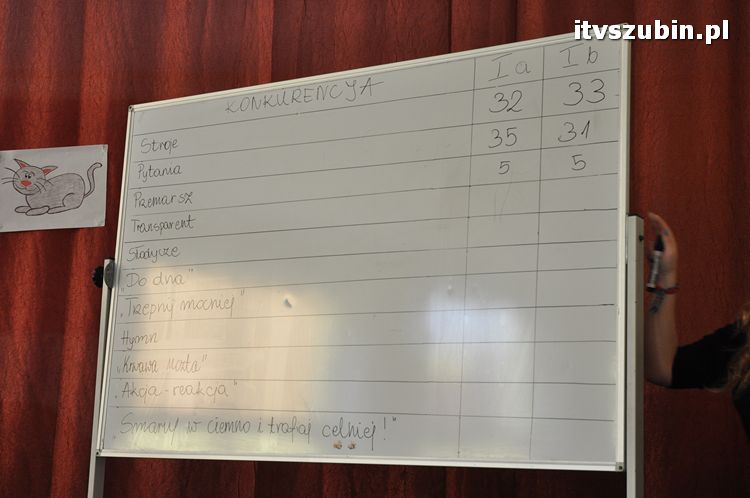 itvszubin.pl
KONKURENCJA I a I b
Stroje 32 33
Pytania 35 31
Przemarsz 5 5
Transparent
Słodycze
„Do dna"
„Trzepnij mocniej"
Hymn
„Krwawa Mozta"
„Akcja - reakcja"
„Smaruj w ciemno i trafiaj celniej!"